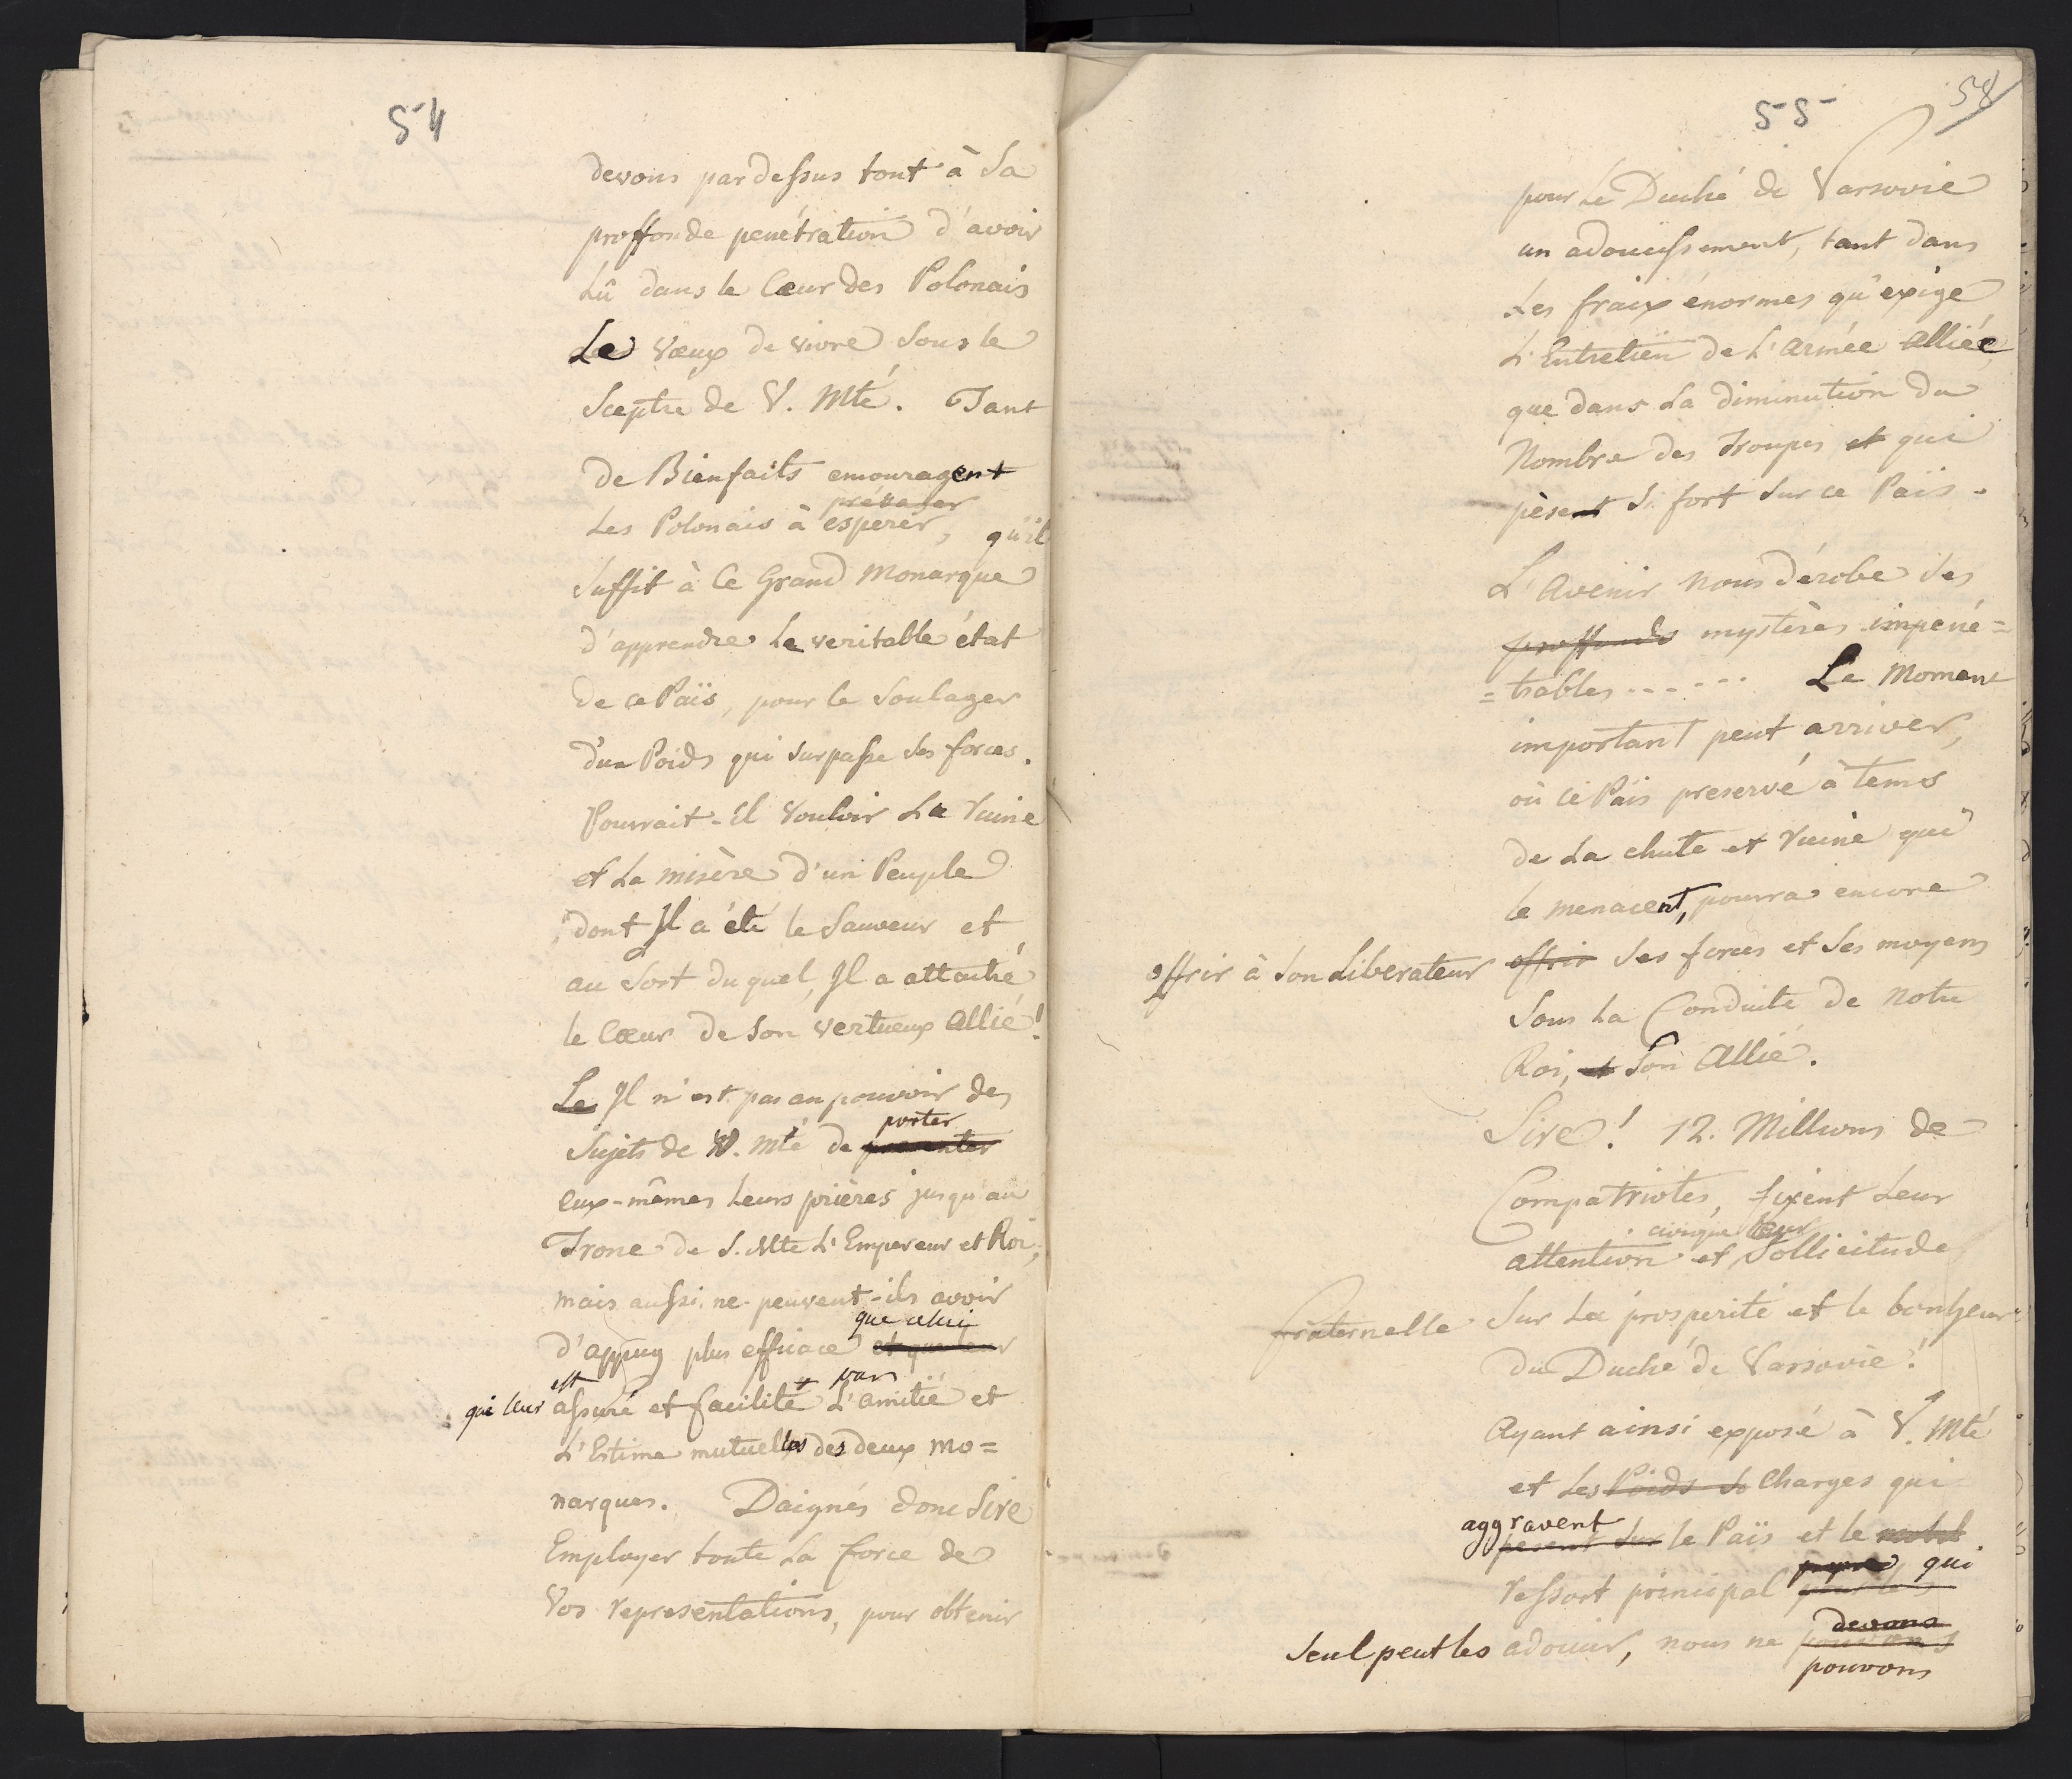 54
devons pardessus tout à Sa
proffonde penétration d'avoir
Lû dans le Cœur des Polonais
Le vœux de vivre sous le
Sceptre de V. Mté. Tant
de Bienfaits encouragent
présager
Les Polonais à esperer, qu'il
suffit à Ce Grand Monarque
d'apprendre le veritable état
de ce Païs, pour le Soulager
d'un Poids qui surpasse ses forces.
Pourrait-il vouloir La ruine
et La misère d'un Peuple
dont Il a été le Sauveur et
au sort du quel, Il a attaché
le Cœur de son vertueux Allié!
Le Il n'est pas au pouvoir des
porter
Sujets de V. Mté de presenter
eux-mêmes leurs prières jusqu'au
Trone de S. Mte L'Empereur et Roi,
mais aussi ne peuvent-ils avoir
que celui
d'appuy plus efficace et que leur
est + par
qui leur assuré et facilité L'amitié et
L'Estime mutuelles des deux mo=
narques. Daignés donc Sire
Employer toute La force de
Vos representations, pour obtenir
55
58
pour Le Duché de Varsovie
un adoucissement, tant dans
Les fraix énormes qu'exige
L'Entretien de L'Armée Alliée,
que dans La diminution du
Nombre des Troupes et qui
pèsent si fort sur ce Païs.
L'Avenir nous dérobe ses
proffonds mystères impené=
=trables ...... Le Moment
important peut arriver,
où ce Païs preservé à tems
de La chute et ruine qui
le menacent, pourra encore
offrir à son Liberateur offrir ses forces et ses moyens
sous La Conduite de notre
Roi, et Son Allié.
Sire! 12. Millions de
Compatriotes, fixent Leur
civique leur
attention et Sollicitude
fraternelle sur La prosperité et le bonheur
du Duché de Varsovie!
Ayant ainsi exposé à V. Mté
et Les Poids de Charges qui
aggravent
pesent sur le Païs et le
qui
ressort principal
devons
Seul peut les adoucir, nous ne pouvons
pouvons